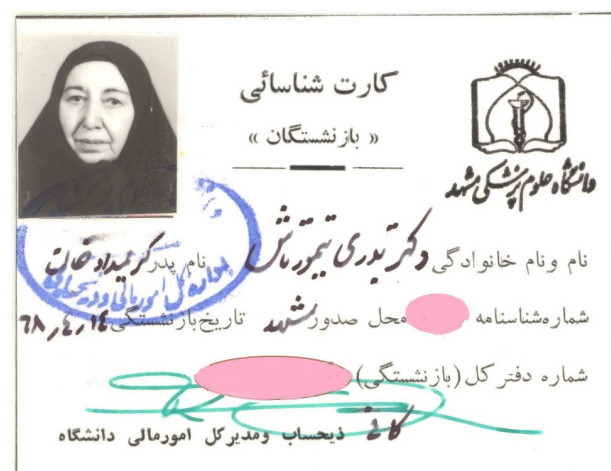 کارت شناسائی
« بازنشستگان »
دانشگاه علوم پزشکی مشهد
نام ونام خانوادگی دکتر بدری تیمورتاش نام پدر کریمداد خان
شماره‌شناسنامه محل صدور مشهد تاریخ‌بازنشستگی ۶۸,۴,۱۴
شماره دفتر کل (بازنشستگی)
ذیحساب ومدیرکل امورمالی دانشگاه